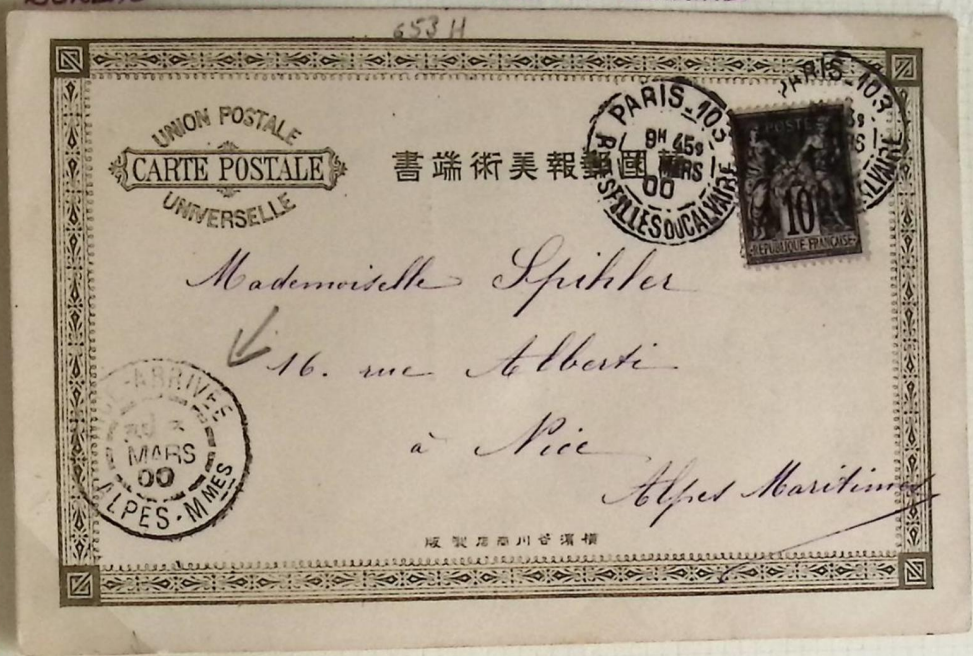 653 H
UNION POSTALE
CARTE POSTALE
UNIVERSELLE
書端術美報郵國
PARIS_103
9H 45S
MARS
00
R. SEILLES DU CALVAIRE
PARIS_103
LVAIRE
POSTES
10
REPUBLIQUE FRANÇAISE
Mademoiselle Spihler
16. rue Alberti
à Nice
Alpes Maritimes
ARRIVEE
MARS
00
ALPES-MMES
版製店商川谷濱橫